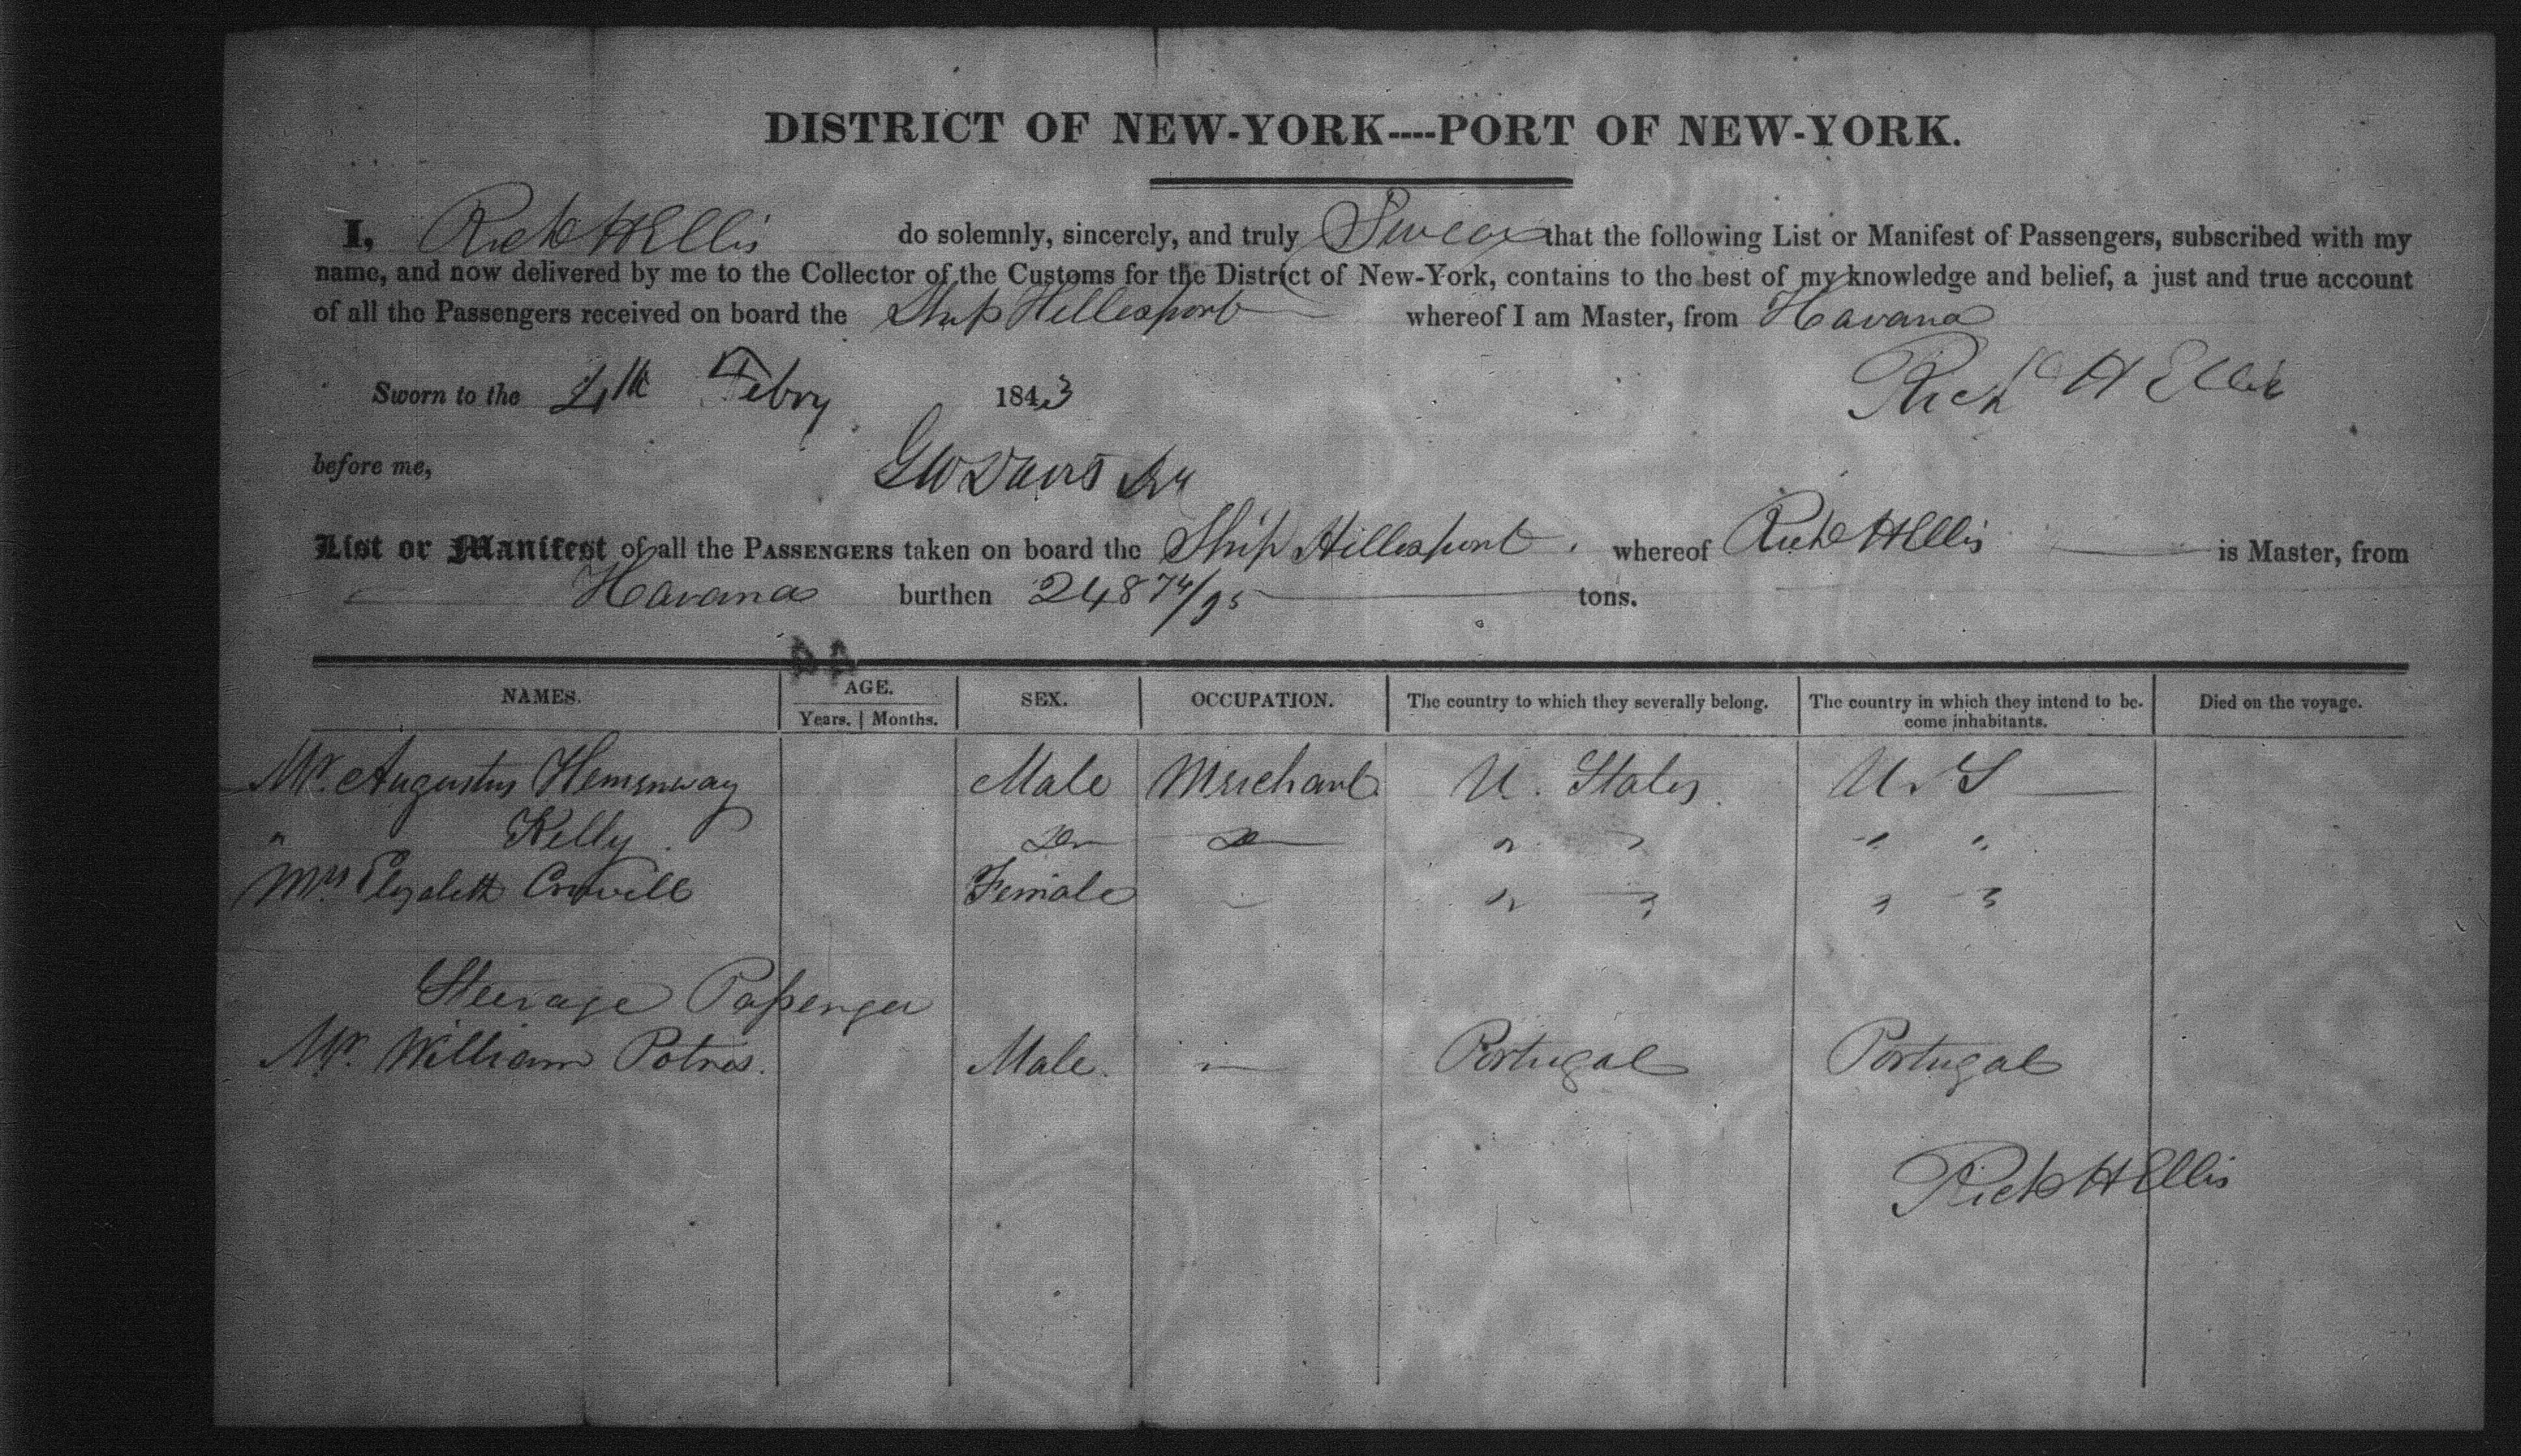 DISTRICT OF NEW-YORK----PORT OF NEW-YORK.
I, Richd H Ellis do solemnly, sincerely, and truly Swear that the following List or Manifest of Passengers, subscribed with my
name, and now delivered by me to the Collector of the Customs for the District of New-York, contains to the best of my knowledge and belief, a just and true account
of all the Passengers received on board the Ship Hellespont whereof I am Master, from Havana
Sworn to the 4th Febry 1843 Richd H Ellis
before me, G W Davis
List or Manifest of all the PASSENGERS taken on board the Ship Hellespont. whereof Richd H Ellis is Master, from
Havana burthen 248 74/95 tons.
NAMES. AGE. SEX. OCCUPATION. The country to which they severally belong. The country in which they intend to be- Died on the voyage.
Years. | Months. come inhabitants.
Mr. Augustus Hemenway Male Merchant U. States U. S
" Kelly. Do Do " " " "
Mrs Elizabeth Crowell Female " " " "
Steerage Passenger
Mr. William Male. Portugal Portugal
Richd H Ellis